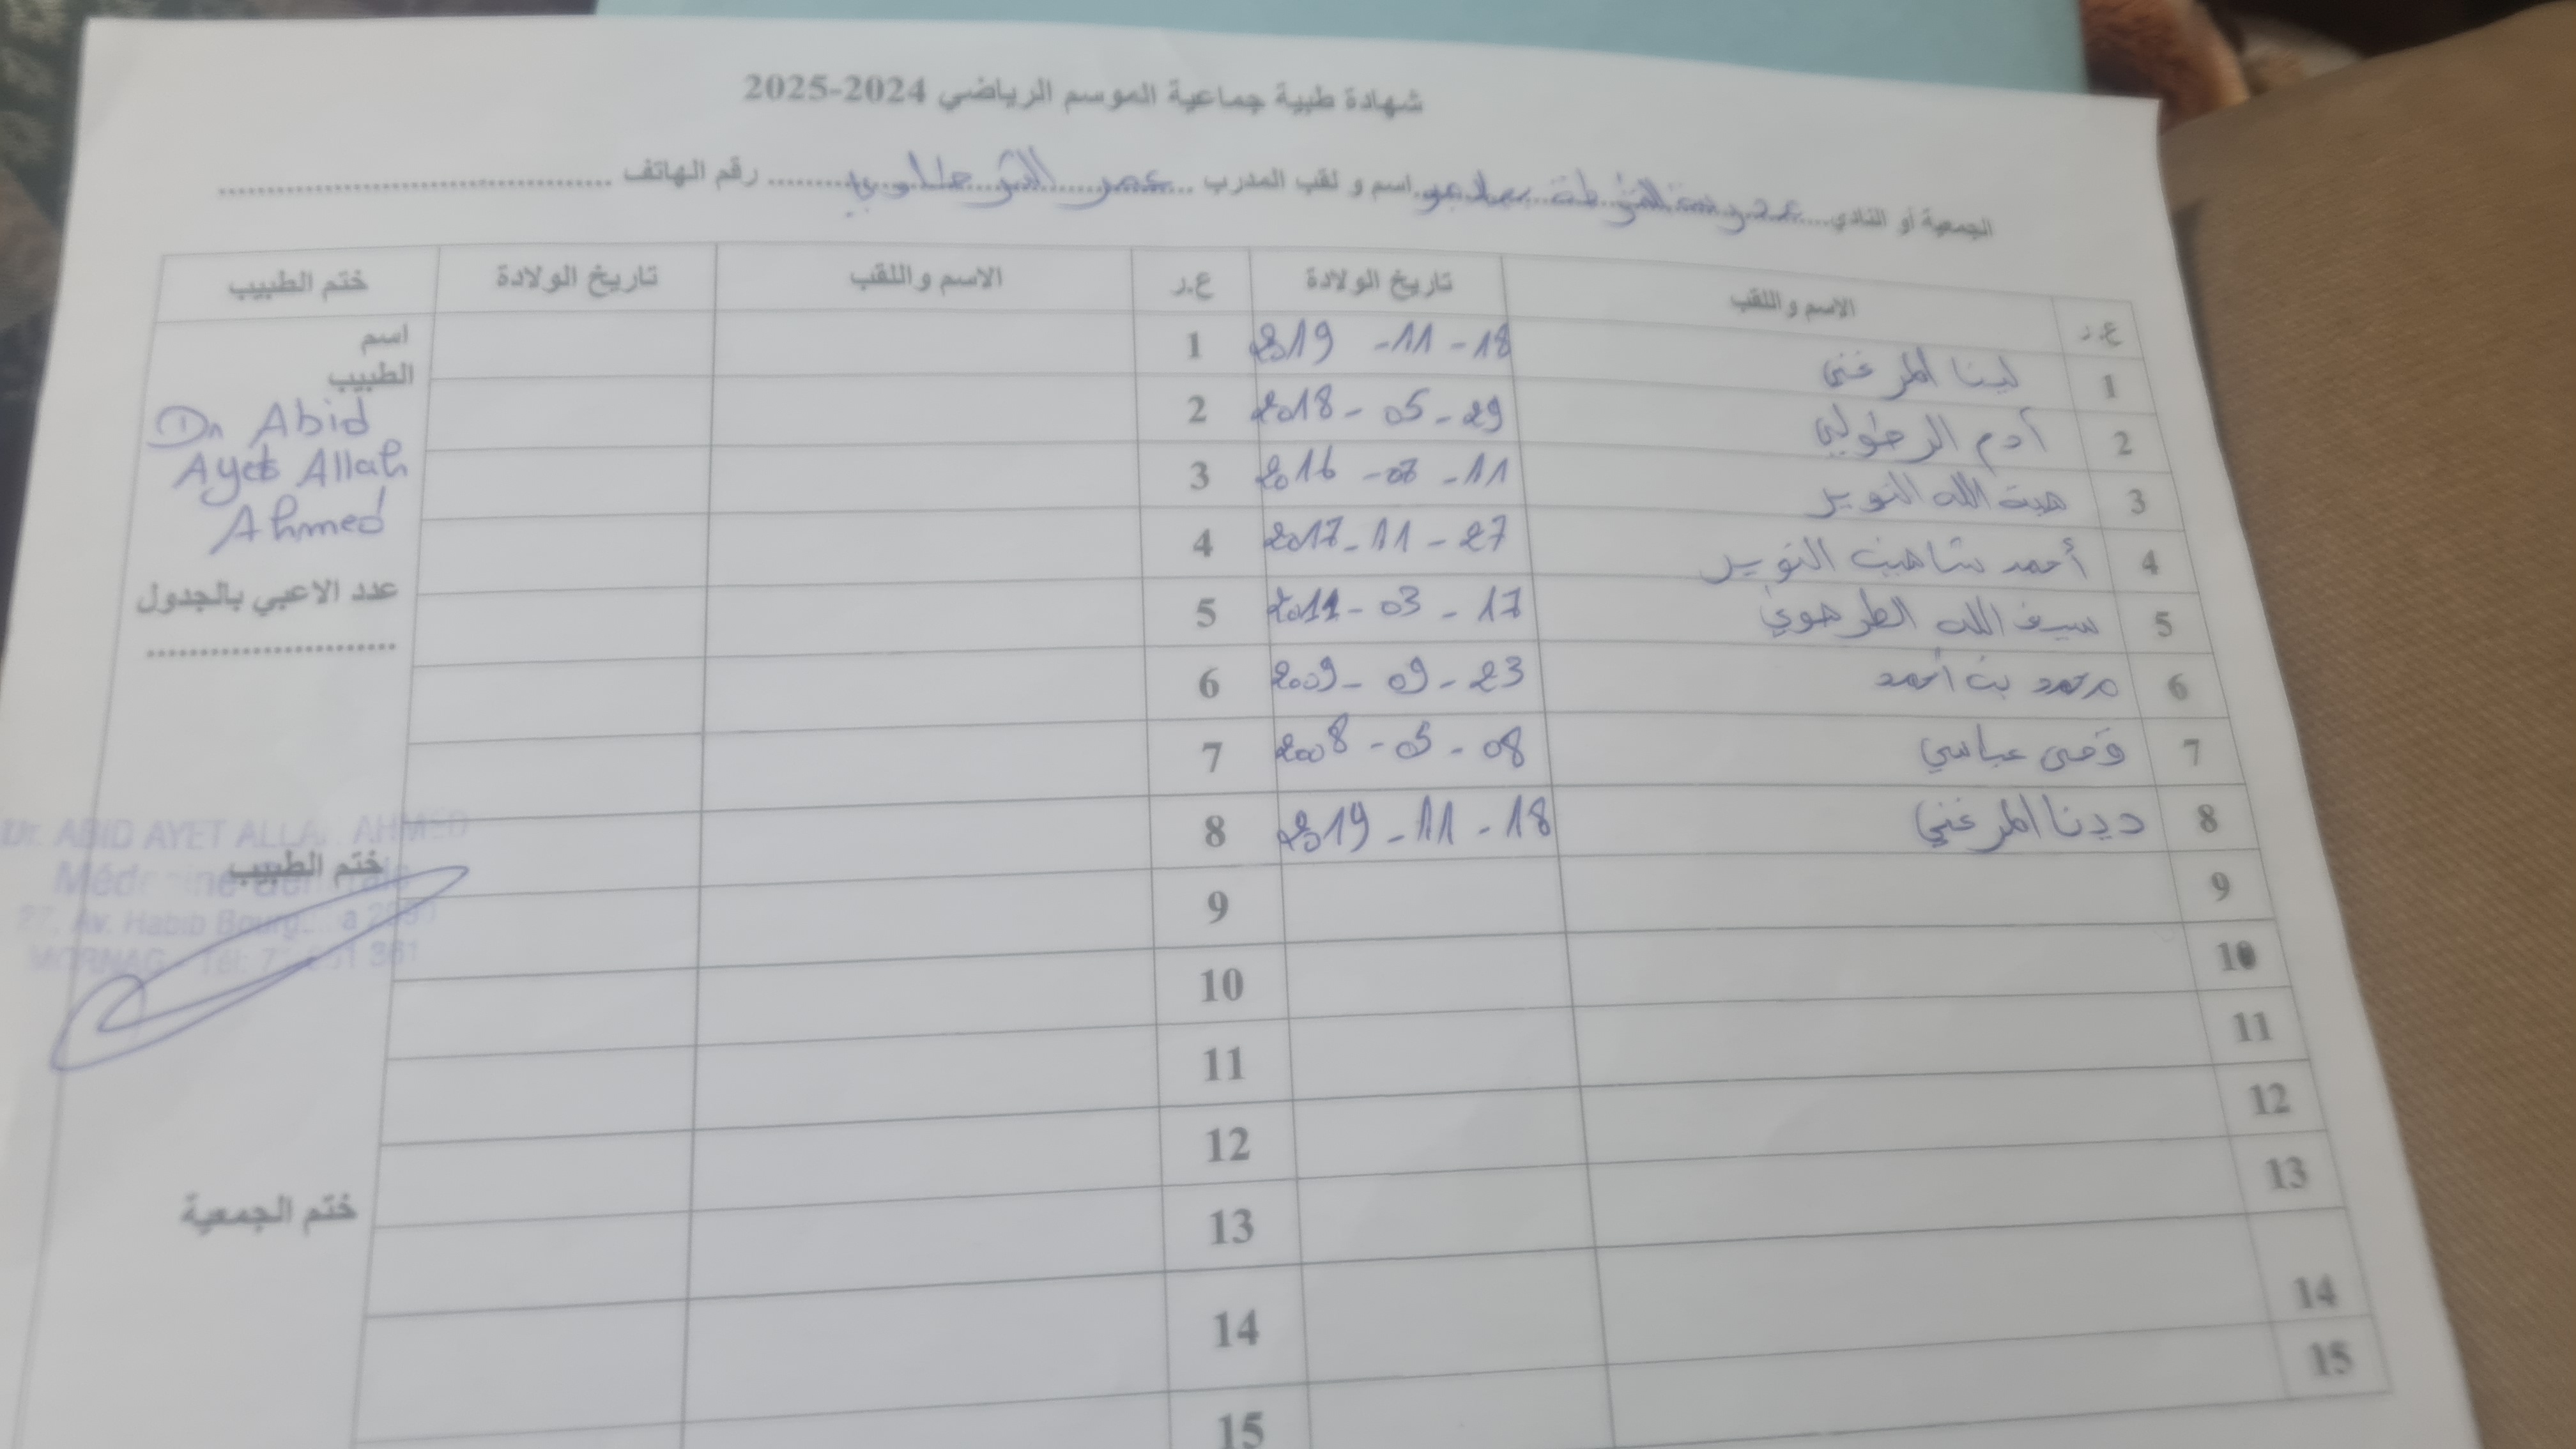 شهادة طبية جماعية الموسم الرياضي 2024-2025
الجمعية أو النادي ........ اسم و لقب المدرب ........ عمر ........ رقم الهاتف ........................
ع.ر الاسم واللقب تاريخ الولادة ع.ر الاسم واللقب تاريخ الولادة ختم الطبيب
1 لينا المرغني 2019 -11 -18 1
2 آدم 2018 - 05 - 29 2
3 هبة الله النوير 2016 - -11 3
4 أحمد شاهين النوير 2017 - 11 - 27 4
5 سيف الله الطرهوني 2011 - 03 - 17 5
6 محمد بن أحمد 2009 - 09 - 23 6
7 قصي عباسي 2008 - 05 - 08 7
8 دينا المرغني 2019 - 11 - 18 8
9 9
10 10
11 11
12 12
13 13
14 14
15 15
اسم
الطبيب
Dr Abid
Ayet Allah
Ahmed
عدد الاعبي بالجدول
........................
Dr. ABID AYET ALLAH AHMED
ختم الطبيب
Médecine Générale
27, Av. Habib Bourguiba
MORNAG Tél:
ختم الجمعية